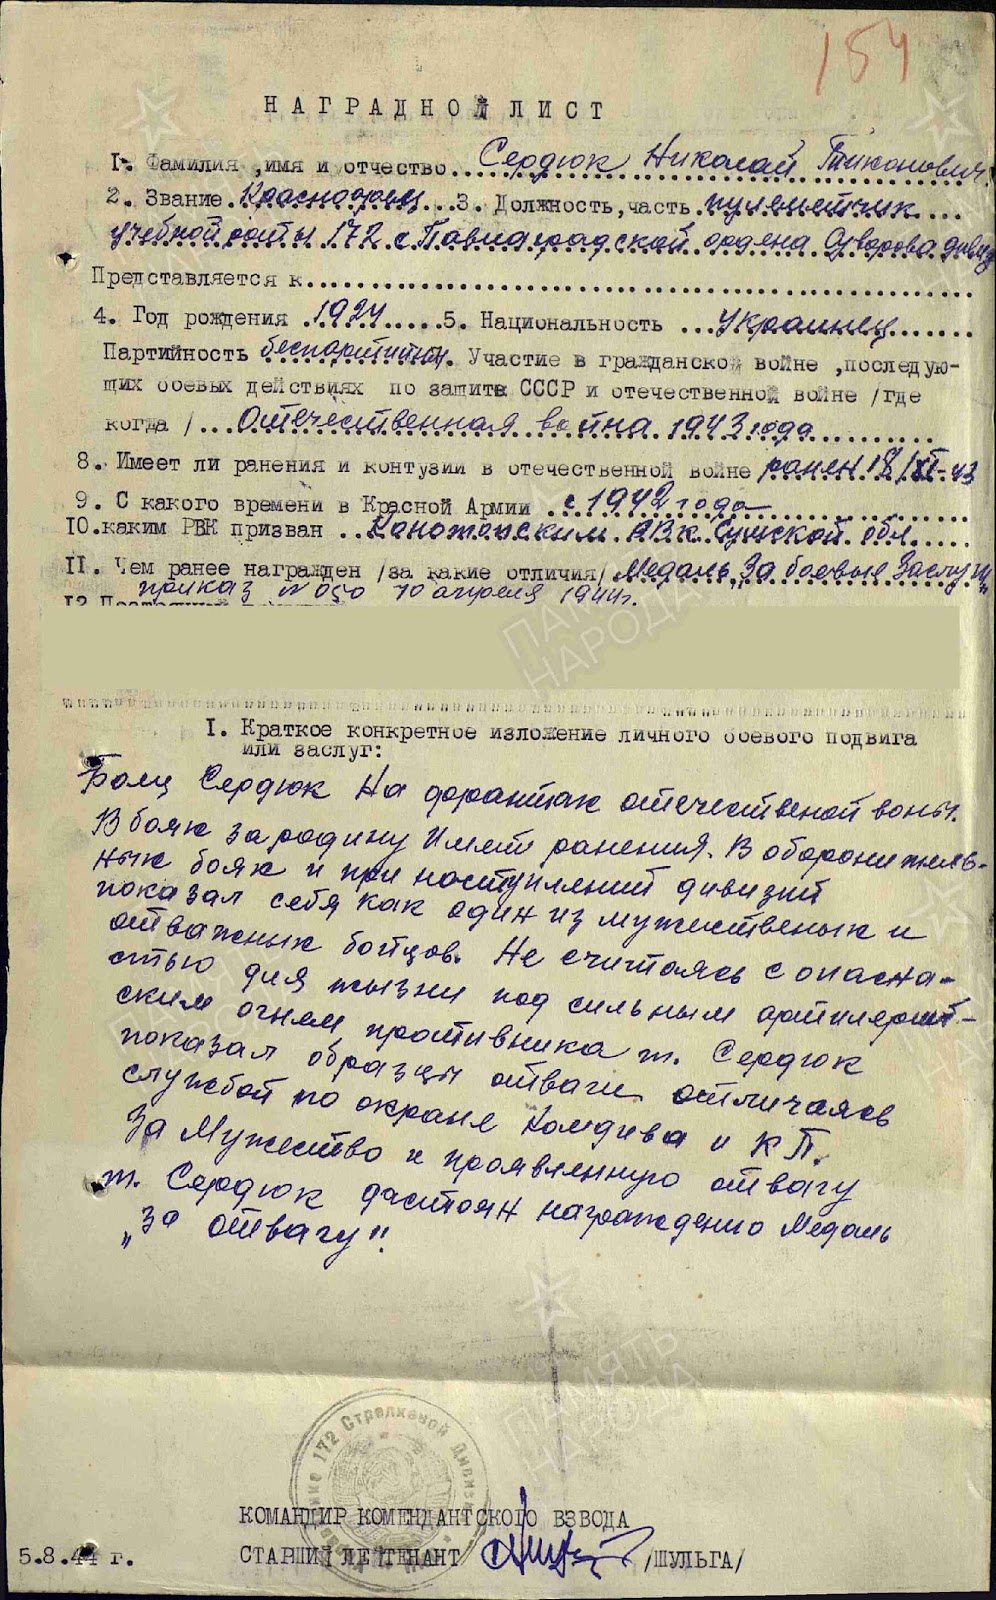 154
НАГРАДНОЙ ЛИСТ
I. Фамилия, имя и отчество Сердюк Николай Тихонович.
2. Звание Красноармеец 3. Должность, часть пулеметчик
учебной роты 172 с Павлоградской ордена Суворова дивиз
Представляется к
4. Год рождения 1924 5. Национальность Украинец
Партийность беспартийный. Участие в гражданской войне, последую-
щих боевых действиях по защите СССР и отечественной войне /где
когда/ Отечественная война 1943 года
8. Имеет ли ранения и контузии в отечественной войне ранен 18/XI-43
9. С какого времени в Красной Армии с 1942 года
10. каким РВК призван Канотопским РВК Сумской обл
II. Чем ранее награжден /за какие отличия/ Медаль „За боевые Заслуги"
приказ № 050 10 апреля 1944г.
I. Краткое конкретное изложение личного боевого подвига
или заслуг:
Боец Сердюк На фронтах отечественой воны.
В боях за родину Имеет ранения. В оборонитель-
ных боях и при наступлений дивизий
показал себя как один из мужественых и
отважных бойцов. Не считаясь с опасна-
стью для жызни под сильным артилерий-
ским огнем противника т. Сердюк
показал образцы отваги отличаясь
службой по охране Комдива и КП.
За Мужество и проявленную отвагу
т. Сердюк достоян награждению Медаль
„За отвагу".
172 Стрелковой Дивизии
КОМАНДИР КОМЕНДАНТСКОГО ВЗВОДА
5.8.44 г. СТАРШИЙ ЛЕЙТЕНАНТ /ШУЛЬГА/
ПАМЯТЬ
НАРОДА